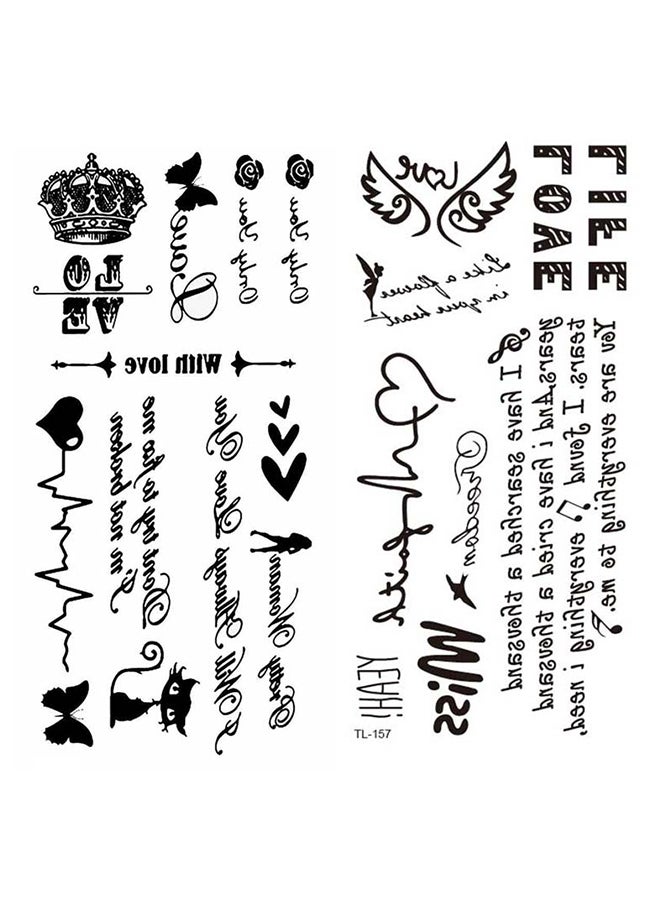 LO
VE
Love
Only You
Only You
With love
I Will Always Love You
Pretty Woman
Love
LIFE
LOVE
Like a flower
in your heart
Faith
Freedom
I have searched a thousand
years,And i have cried a thousand
tears. I found everything i need,
You are everything to me.
Miss
YEAH!
TL-157